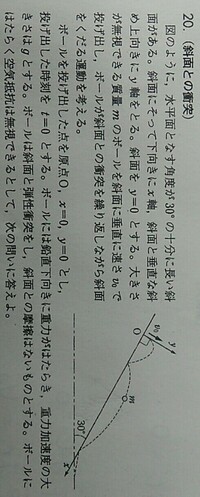 20. 〔斜面との衝突〕
図のように，水平面となす角度が30°の十分に長い斜
面がある。斜面にそって下向きにx軸，斜面に垂直な斜
め上向きにy軸をとる。斜面をy=0とする。大きさ
が無視できる質量mのボールを斜面に垂直に速さv₀で
投げ出し，ボールが斜面との衝突を繰り返しながら斜面
をくだる運動を考える。
ボールを投げ出した点を原点O，x=0，y=0とし，
投げ出した時刻をt=0とする。ボールには鉛直下向きに重力がはたらき，重力加速度の大
きさはgとする。ボールは斜面と弾性衝突をし，斜面との摩擦はないものとする。ボールに
はたらく空気抵抗は無視できるとして，次の問いに答えよ。
y
v₀
O
m
30°
x